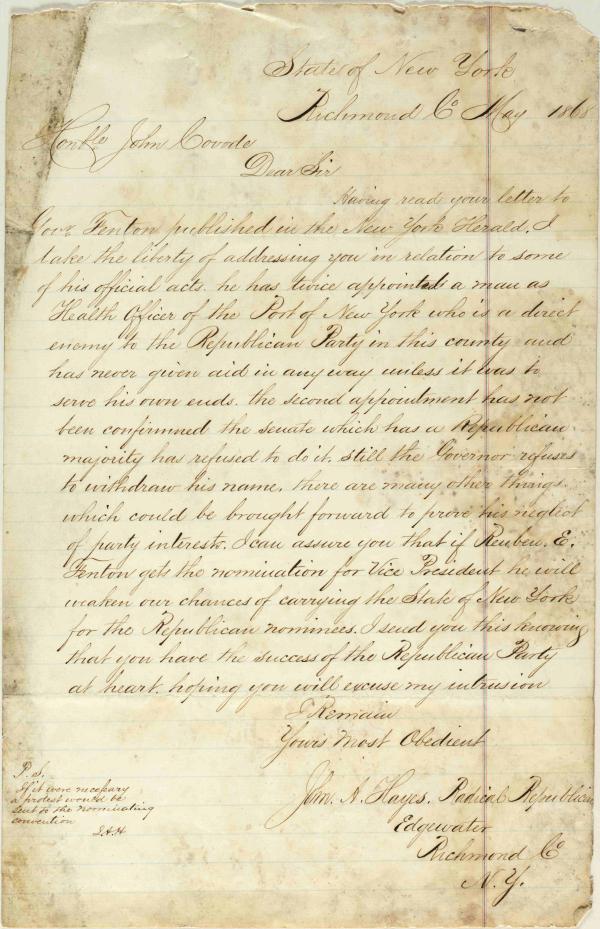 State of New York
Richmond Co May 1868
Honble John Covode
Dear Sir
Having read your letter to
Govr Fenton published in the New York Herald. I
take the liberty of addressing you in relation to some
of his official acts. he has twice appointed a man as
Health Officer of the Port of New York who is a direct
enemy to the Republican Party in this county and
has never given aid in any way unless it was to
serve his own ends. the second appointment has not
been confirmed the senate which has a Republican
majority has refused to do it. still the Governor refuses
to withdraw his name. there are many other things
which could be brought forward to prove his neglect
of party interests. I can assure you that if Reuben. E.
Fenton gets the nomination for Vice President he will
weaken our chances of carrying the State of New York
for the Republican nominees. I send you this knowing
that you have the success of the Republican Party
at heart. hoping you will excuse my intrusion
I Remain
Yours Most Obedient
John. A. Hayes. Radical Republican
Edgewater
Richmond Co
N.Y.
P.S.
If it were necessary
a protest would be
sent to the nominating
convention
J.A.H